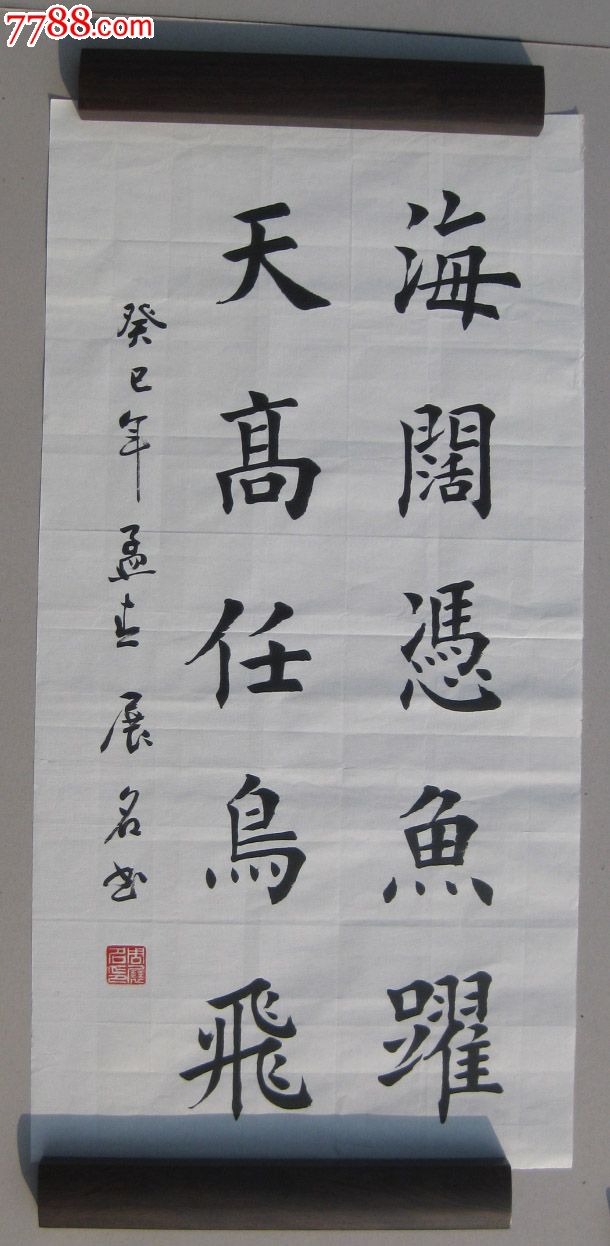 7788.com
海闊憑魚躍
天高任鳥飛
癸巳年孟春 展名书
周展名印